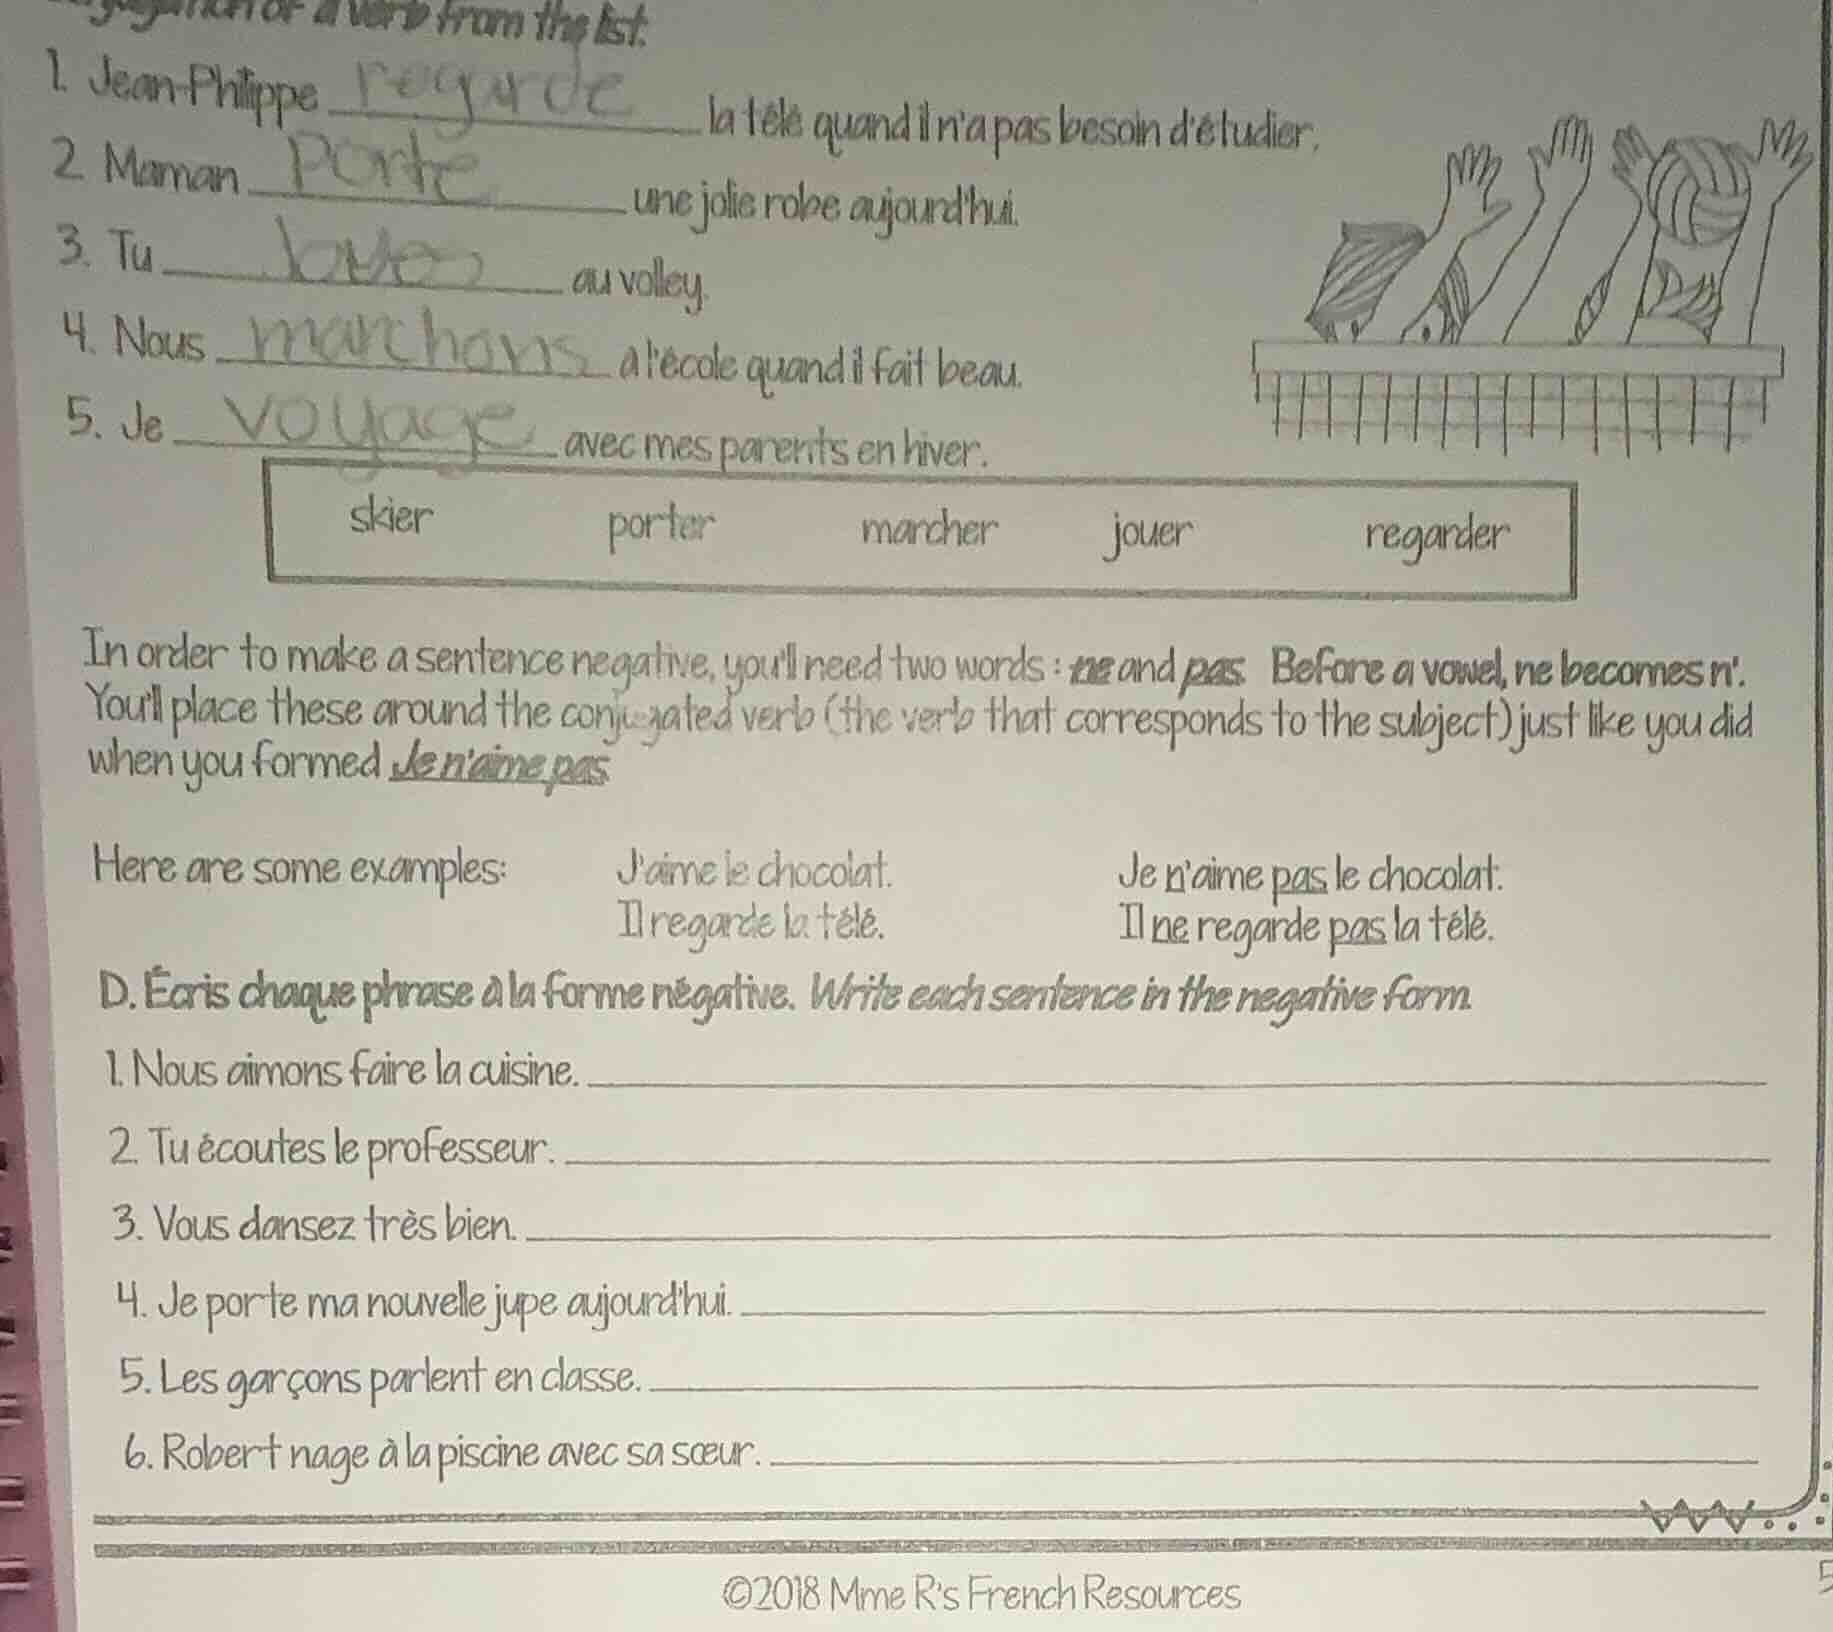 of a verb from the list.
1. Jean-Philippe regarde la télé quand il n'a pas besoin d'étudier.
2. Maman porte une jolie robe aujourd'hui.
3. Tu joues au volley.
4. Nous marchons à l'école quand il fait beau.
5. Je voyage avec mes parents en hiver.
skier porter marcher jouer regarder
In order to make a sentence negative, you'll need two words: ne and pas. Before a vowel, ne becomes n'.
You'll place these around the conjugated verb (the verb that corresponds to the subject) just like you did
when you formed Je n'aime pas.
Here are some examples: J'aime le chocolat. Je n'aime pas le chocolat.
Il regarde la télé. Il ne regarde pas la télé.
D. Écris chaque phrase à la forme négative. Write each sentence in the negative form.
1. Nous aimons faire la cuisine.
2. Tu écoutes le professeur.
3. Vous dansez très bien.
4. Je porte ma nouvelle jupe aujourd'hui.
5. Les garçons parlent en classe.
6. Robert nage à la piscine avec sa sœur.
©2018 Mme R's French Resources
5